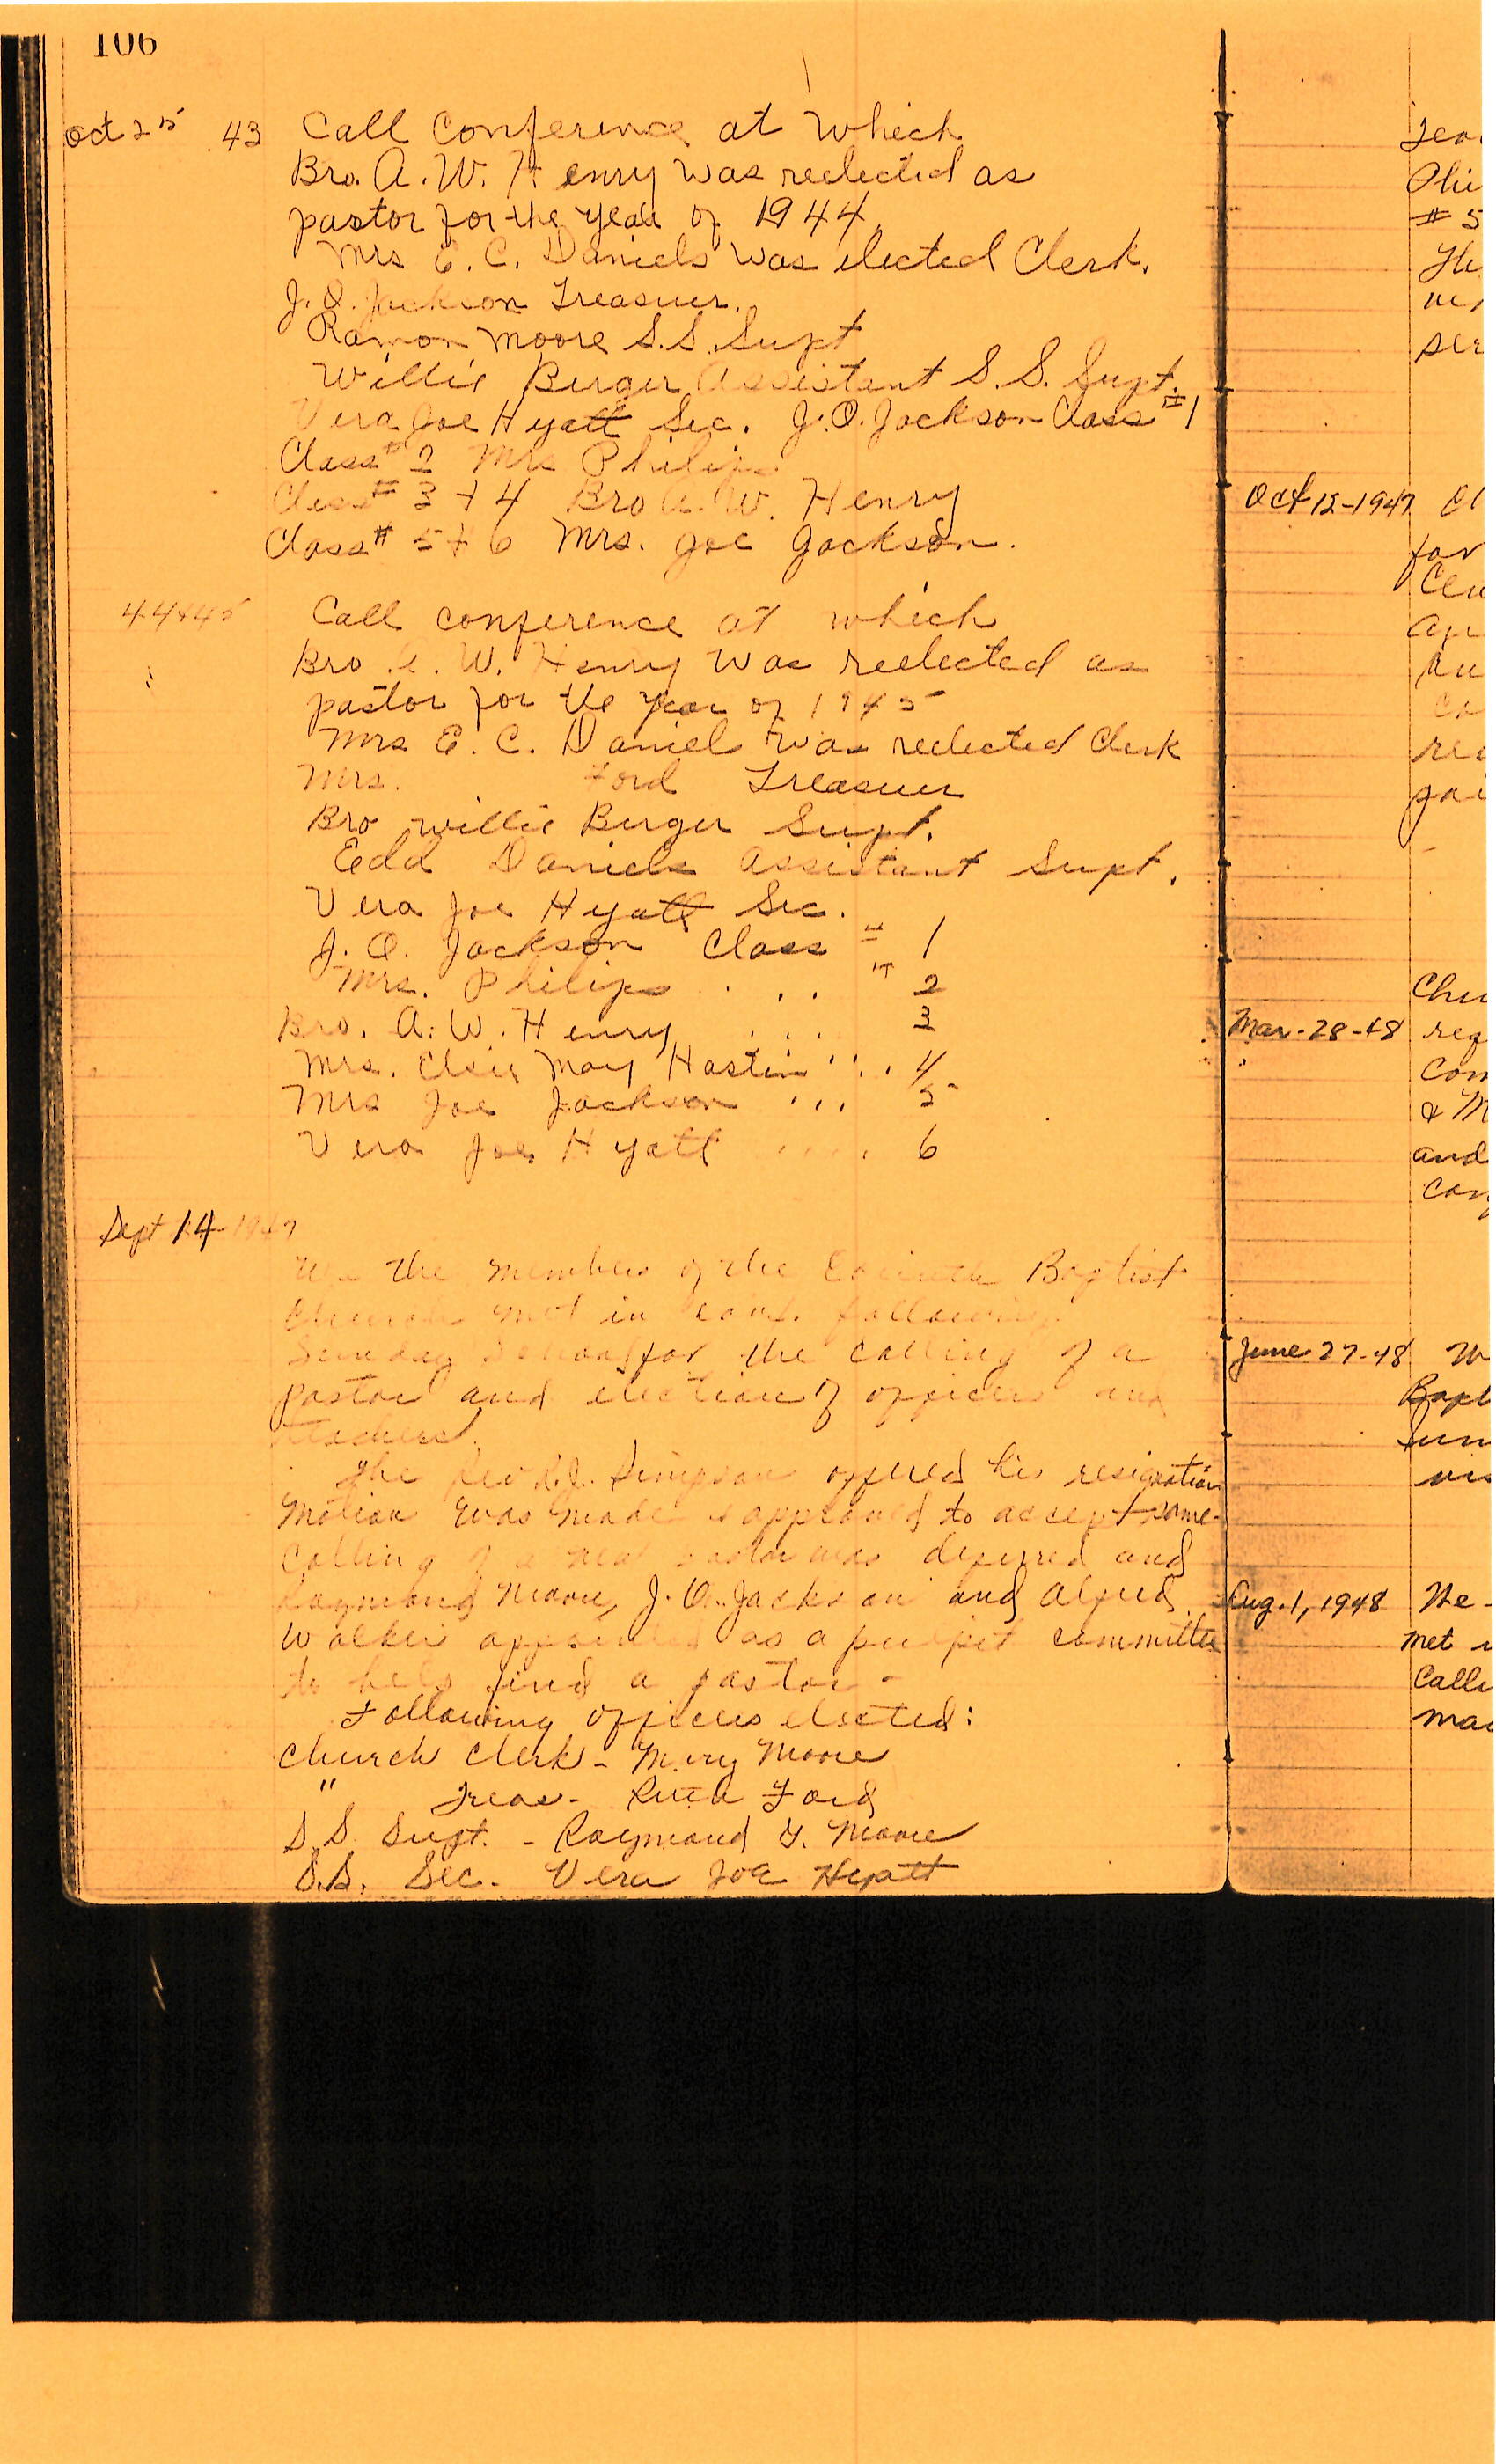 106
Oct 25 43 Call Conference at which
Bro. A. W. Henry was reelected as
pastor for the year of 1944.
Mrs E. C. Daniels was elected Clerk.
J. O. Jackson Treasuer.
Ramon Moore S.S. Supt
Willie Burger Assistant S.S. Supt.
Vera Joe Hyatt Sec. J. O. Jackson Class #1
Class #2 Mrs Philips
Class # 3 + 4 Bro A. W. Henry
Class # 5 + 6 Mrs. Joe Jackson.
44&45 Call conference at which
Bro A. W. Henry was reelected as
pastor for the year of 1945
Mrs E. C. Daniel was reelected Clerk
Mrs. Ford Treasuer
Bro Willie Burger Supt.
Edd Daniels Assistant Supt.
Vera Joe Hyatt Sec.
J. O. Jackson Class # 1
Mrs. Philips " 2
Bro. A. W. Henry 3
Mrs. Elsie May Hastin 4
Mrs Joe Jackson 5
Vera Joe Hyatt 6
Sept 14-1947
We the members of the Corinth Baptist
Church met in conf. following
Sunday School for the calling of a
pastor and election of officers and
teachers.
The Rev. Simpson offered his resignation
Motion was made & approved to accept same.
Calling of a new pastor was deferred and
Raymond Moore, J. O. Jackson and Alfred
Walker appointed as a pulpit committee
to help find a pastor-
Following officers elected:
Church Clerk - Mary Moore
" Treas- Ruth Ford
S.S. Supt. - Raymond F. Moore
S.S. Sec. Vera Joe Hyatt
# 5
Oct 12-1947
for
Mar-28-48
Com
& M
and
June 27-48
Aug. 1, 1948 The
met